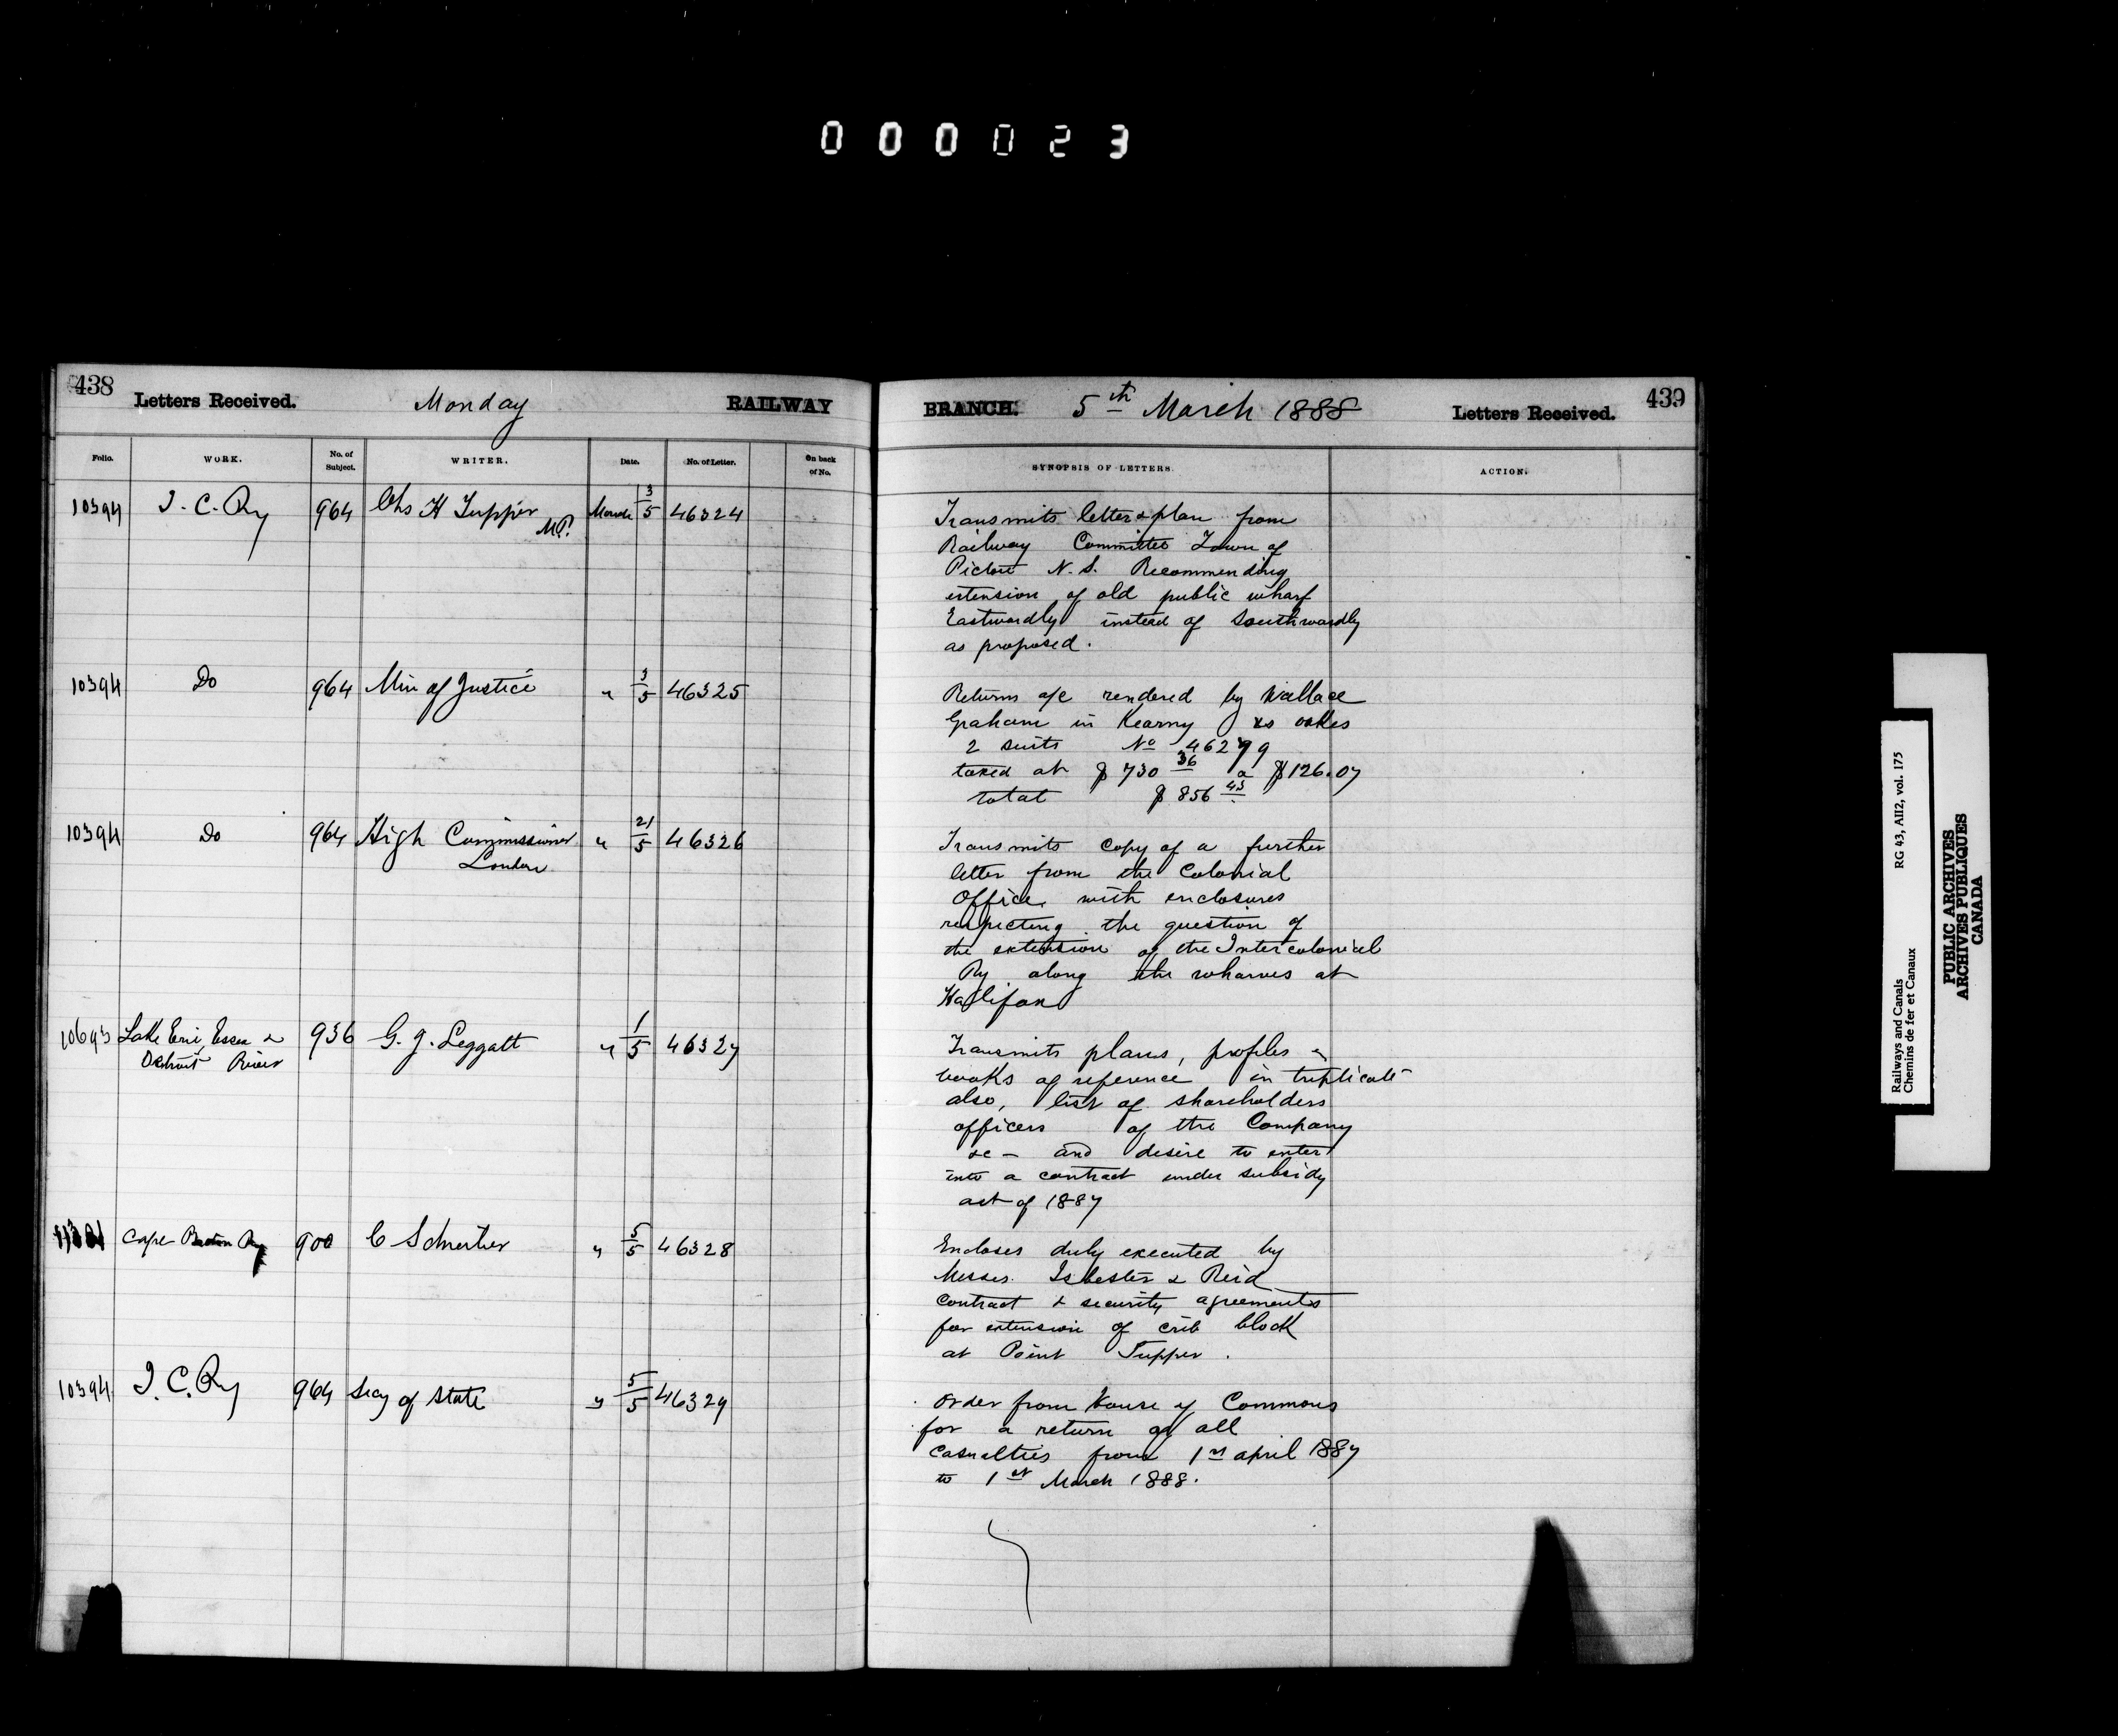 000023
438 Letters Received. Monday RAILWAY
Folio. WORK. No. of Subject. WRITER. Date. No. of Letter. On back of No.
10394 I. C. Ry 964 Chs H Tupper March 3/5 46324
M.P.
10394 Do 964 Min of Justice " 3/5 46325
10394 Do 964 High Commissioner " 21/5 46326
London
10693 Lake Erie, Essex & 936 G. J. Leggatt " 1/5 46327
Detroit River
Cape Breton Ry 900 C Schreiber " 5/5 46328
10394 I. C. Ry 964 Secy of State " 5/5 46329
BRANCH. 5th March 1888 Letters Received. 439
SYNOPSIS OF LETTERS. ACTION.
Transmits letter & plan from
Railway Committee Town of
Pictou N.S. Recommending
extension of old public wharf
Eastwardly instead of Southwardly
as proposed.
Returns a/c rendered by Wallace
Graham in Kearny vs Oakes
2 suits No 46279
taxed at $730 36 & $126.07
total $856 43
Transmits copy of a further
letter from the Colonial
Office, with enclosures
respecting the question of
the extension of the Intercolonial
Ry along the wharves at
Halifax
Transmits plans, profiles &
books of reference in triplicate
also, list of shareholders
officers of the Company
&c - and desire to enter
into a contract under subsidy
act of 1887
Encloses duly executed by
Messrs. Isbester & Reid
contract & security agreements
for extension of crib block
at Point Tupper.
Order from House of Commons
for a return of all
casualties from 1st April 1887
to 1st March 1888.
Railways and Canals RG 43, AII2, vol. 175
Chemins de fer et Canaux
PUBLIC ARCHIVES
ARCHIVES PUBLIQUES
CANADA